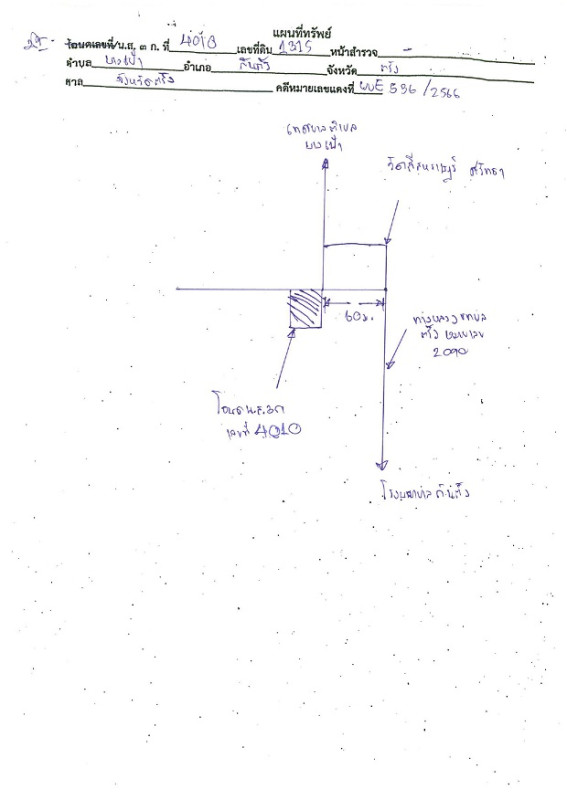 แผนที่ทรัพย์
โฉนดเลขที่/น.ส. ๓ ก. ที่ 4010 เลขที่ดิน 1315 หน้าสำรวจ -
ตำบล บางเป้า อำเภอ กันตัง จังหวัด ตรัง
ศาล จังหวัดตรัง คดีหมายเลขแดงที่ ผบE 596 /2566
เทศบาลตำบล
บางเป้า
60 ม.
ทางหลวงชนบท
ตรัง หมายเลข
2090
เลขที่ 4010
โรงพยาบาลกันตัง